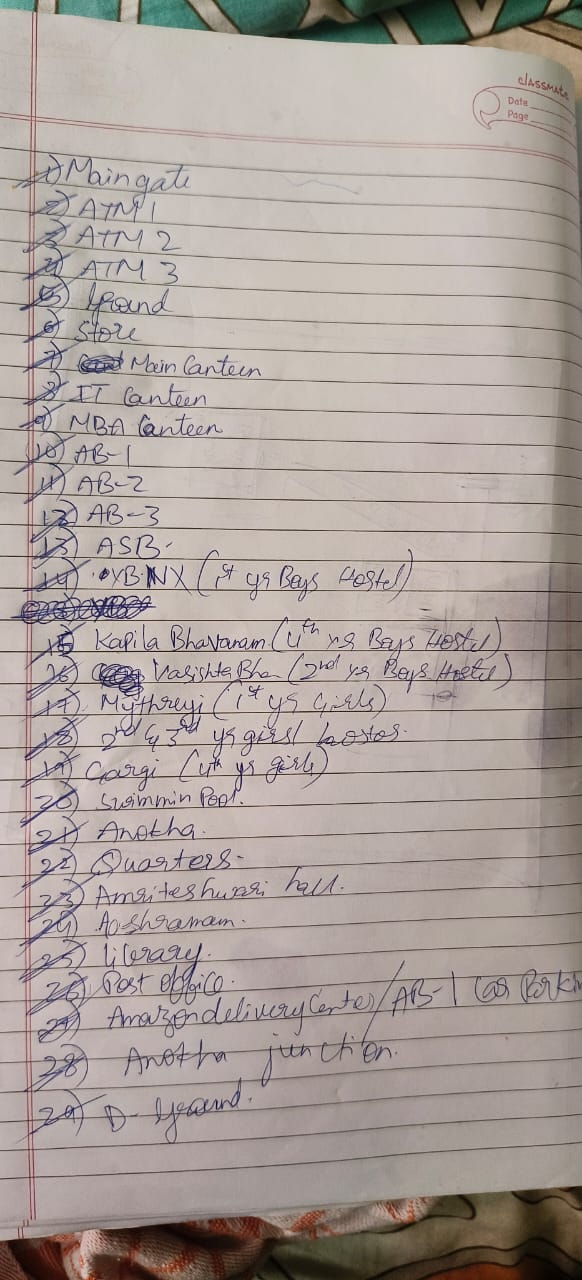 classmate
Date
Page
1) Maingate
2) ATM 1
3) ATM 2
4) ATM 3
5) Ground
6) Store
7) Main Canteen
8) IT Canteen
9) MBA Canteen
10) AB-1
11) AB-2
12) AB-3
13) ASB-
14) YB.NX (1st yr Boys Hostel)
15) Kapila Bhavanam. (4th yr Boys Hostel)
16) Vasishta Bha (2nd yr Boys Hostel)
17) Mythreyi (1st yr Girls)
18) 2nd & 3rd yr girsl hostos.
19) Gargi (4th yr girls)
20) Swimmin Pool.
21) Anotha.
22) Quarters-
23) Amriteshwari hall.
24) Aoshramam.
25) Library.
26) Post office.
27) Amazon delivery Center / AB-1 Car Parkin
28) Anotha junction.
29) D- Ground.